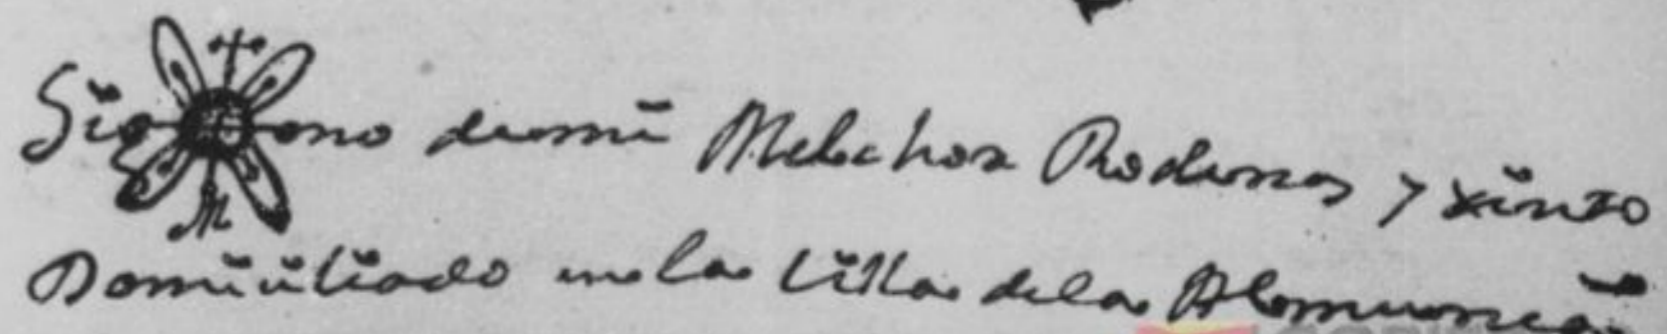 Sig no de mi Melchor Rodenas y xinto
Domiciliado en la Villa de la Almunia